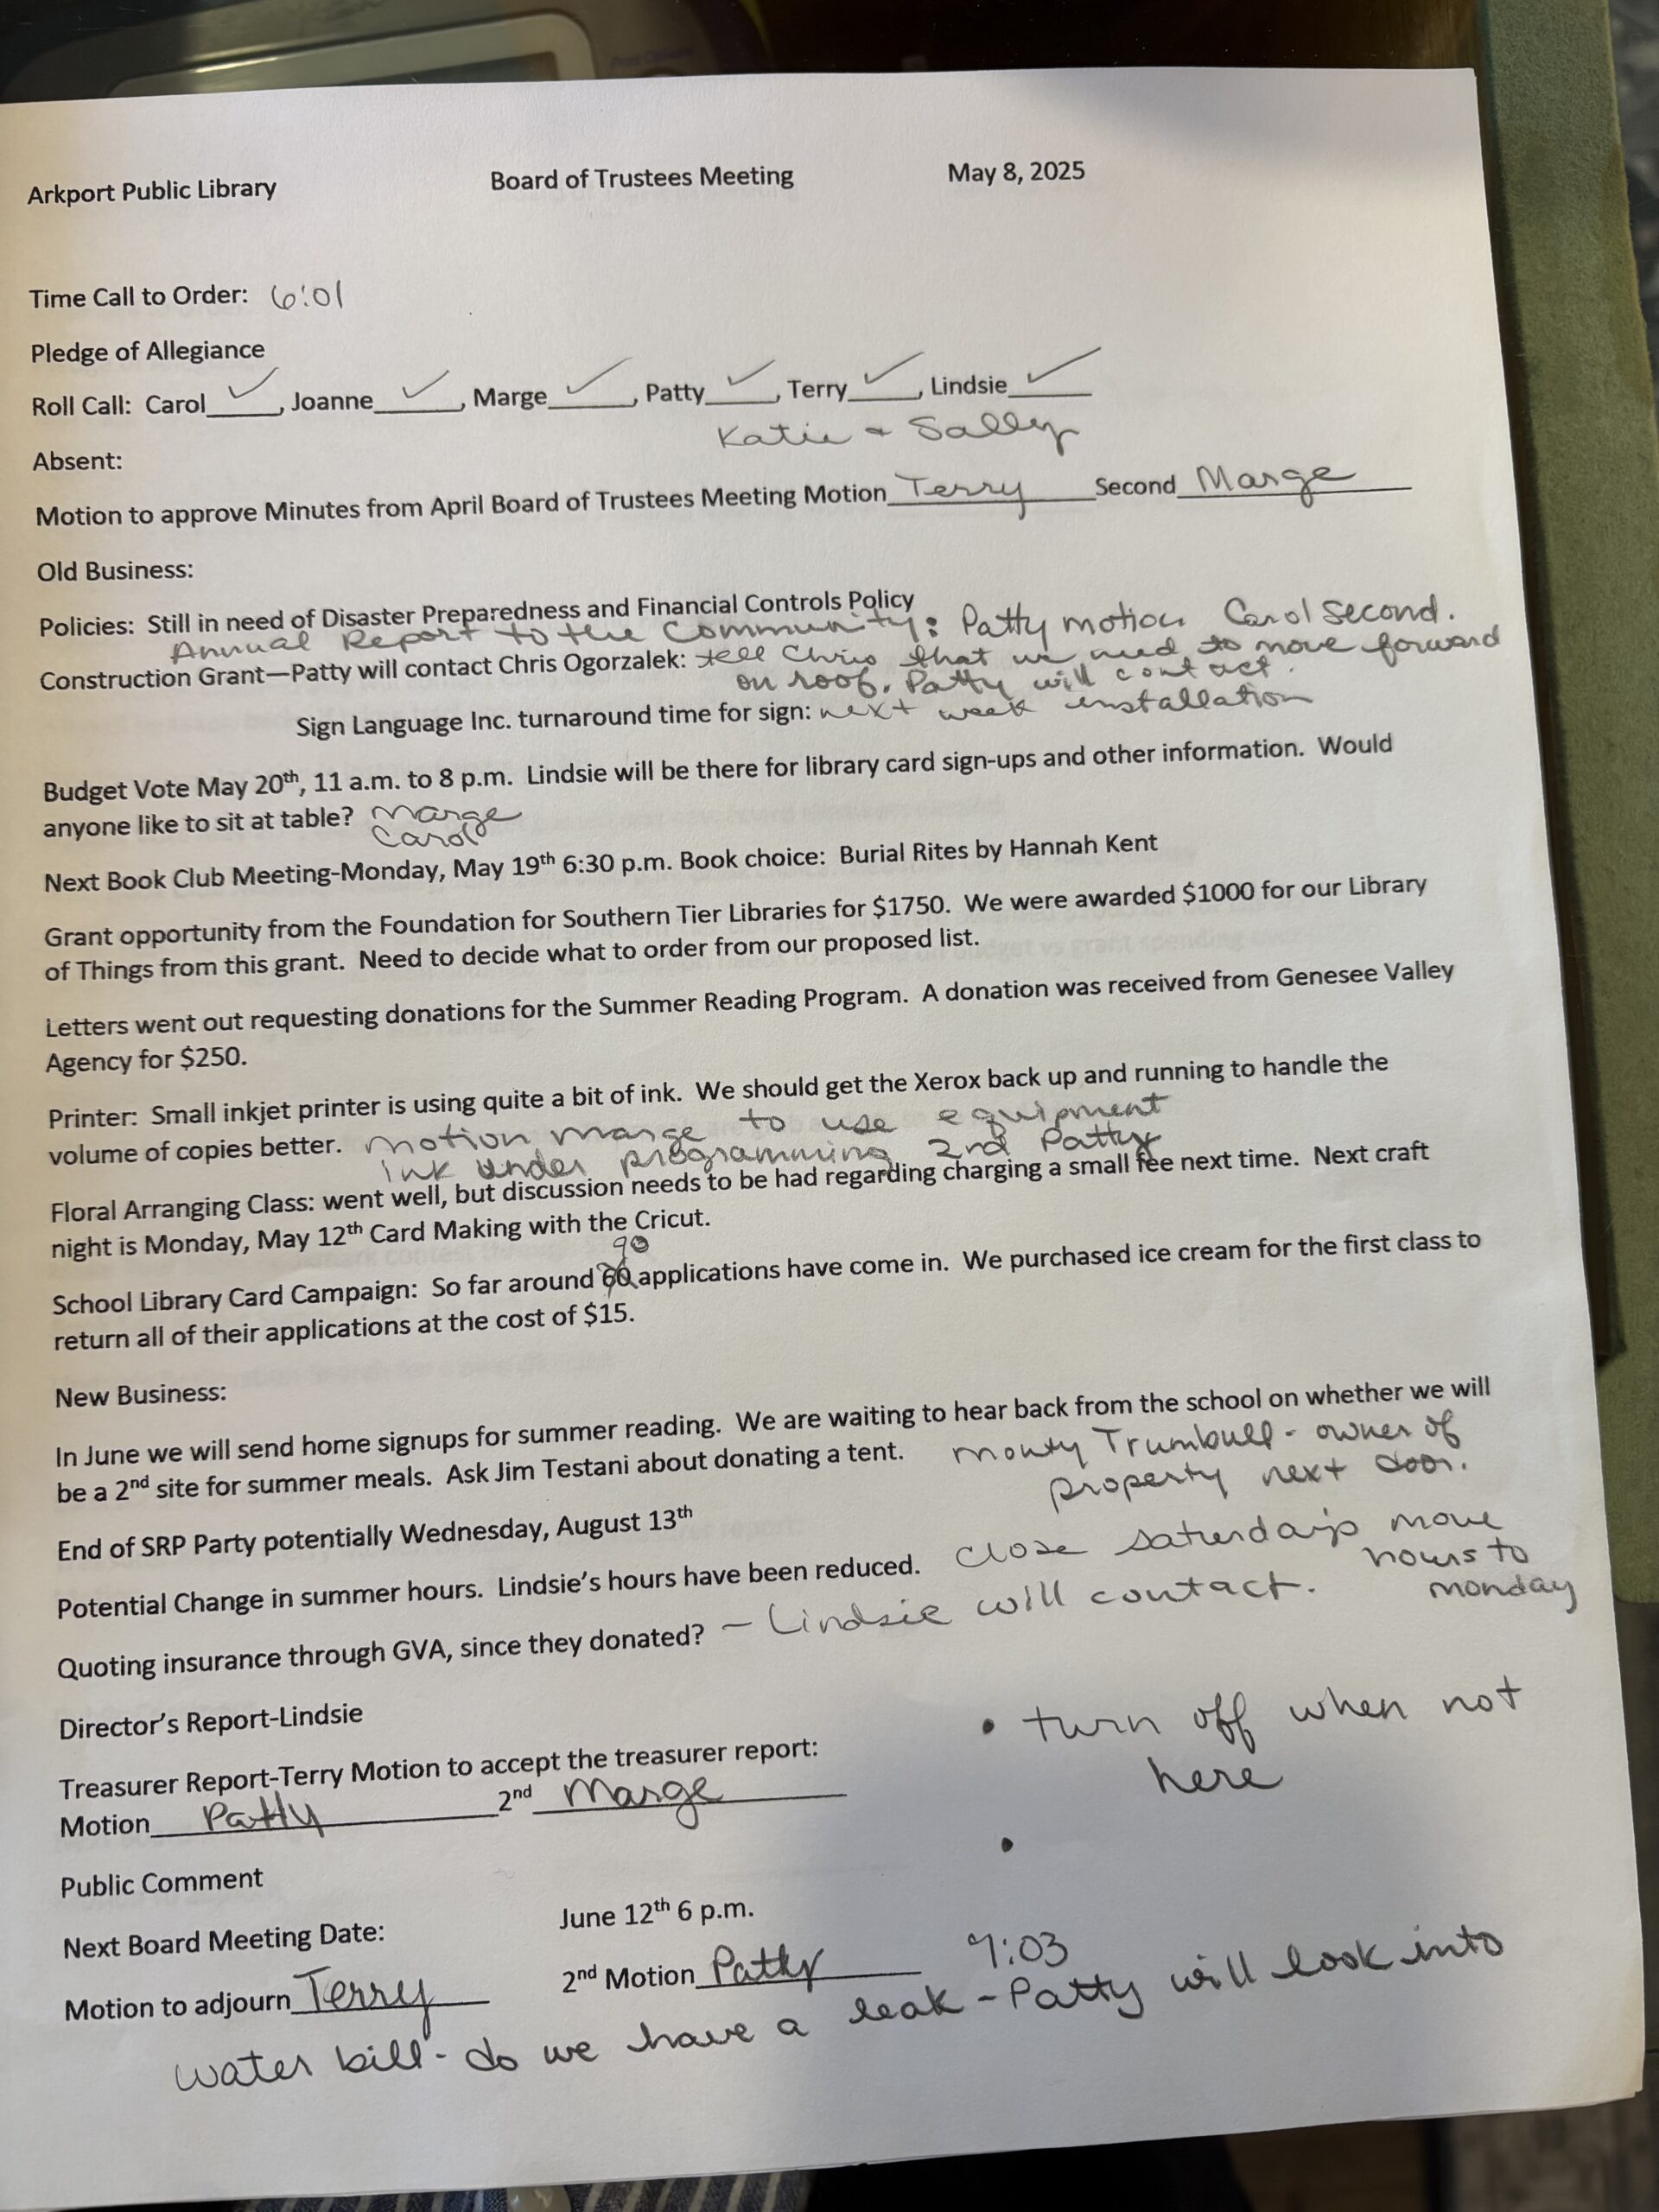 Arkport Public Library Board of Trustees Meeting May 8, 2025
Time Call to Order: 6:01
Pledge of Allegiance
Roll Call: Carol ✓, Joanne ✓, Marge ✓, Patty ✓, Terry ✓, Lindsie ✓
Katie + Sally
Absent:
Motion to approve Minutes from April Board of Trustees Meeting Motion Terry Second Marge
Old Business:
Policies: Still in need of Disaster Preparedness and Financial Controls Policy
Annual Report to the Community: Patty motion Carol second.
Construction Grant—Patty will contact Chris Ogorzalek: tell Chris that we need to move forward
on roof. Patty will contact.
Sign Language Inc. turnaround time for sign: next week installation
Budget Vote May 20th, 11 a.m. to 8 p.m. Lindsie will be there for library card sign-ups and other information. Would
anyone like to sit at table? Marge
Carol
Next Book Club Meeting-Monday, May 19th 6:30 p.m. Book choice: Burial Rites by Hannah Kent
Grant opportunity from the Foundation for Southern Tier Libraries for $1750. We were awarded $1000 for our Library
of Things from this grant. Need to decide what to order from our proposed list.
Letters went out requesting donations for the Summer Reading Program. A donation was received from Genesee Valley
Agency for $250.
Printer: Small inkjet printer is using quite a bit of ink. We should get the Xerox back up and running to handle the
volume of copies better. Motion Marge to use equipment
ink under programming 2nd Patty
Floral Arranging Class: went well, but discussion needs to be had regarding charging a small fee next time. Next craft
night is Monday, May 12th Card Making with the Cricut.
90
School Library Card Campaign: So far around 60 applications have come in. We purchased ice cream for the first class to
return all of their applications at the cost of $15.
New Business:
In June we will send home signups for summer reading. We are waiting to hear back from the school on whether we will
be a 2nd site for summer meals. Ask Jim Testani about donating a tent. Monty Trumbull - owner of
property next door.
End of SRP Party potentially Wednesday, August 13th
Potential Change in summer hours. Lindsie's hours have been reduced. Close Saturdays move
hours to
Monday
Quoting insurance through GVA, since they donated? - Lindsie will contact.
Director's Report-Lindsie
• turn off when not
here
Treasurer Report-Terry Motion to accept the treasurer report:
Motion Patty 2nd Marge
•
Public Comment
Next Board Meeting Date: June 12th 6 p.m.
Motion to adjourn Terry 2nd Motion Patty 7:03
water bill - do we have a leak - Patty will look into